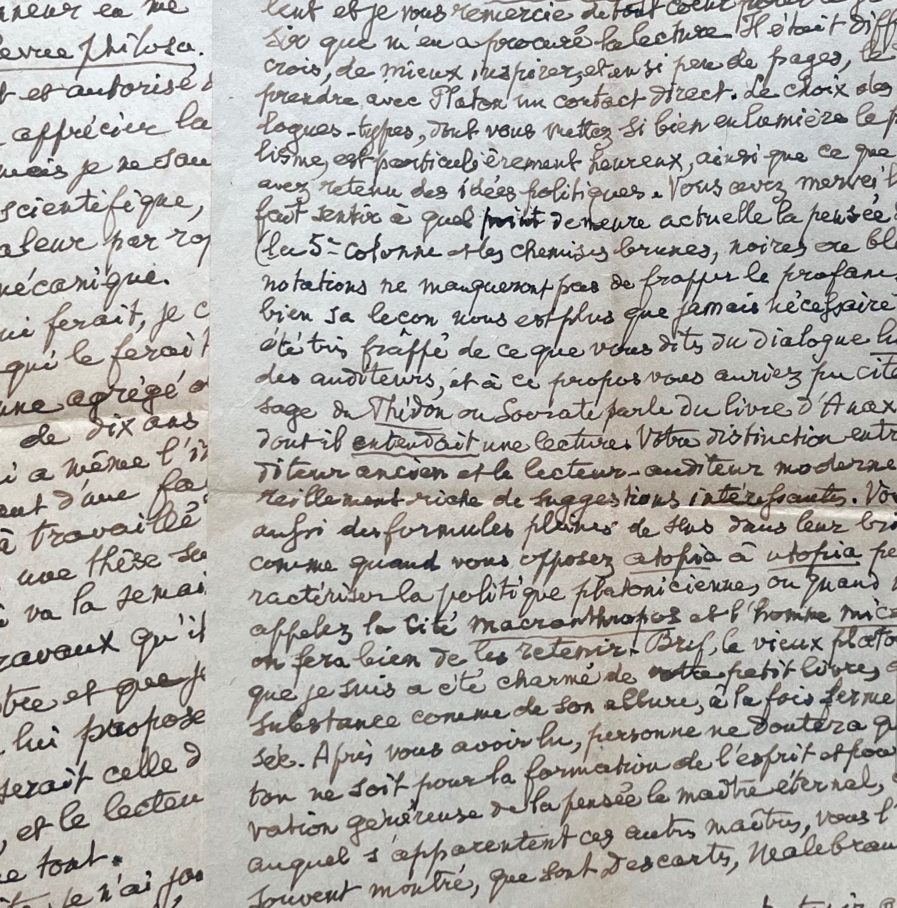 nneur en me
evue philoso.
t et autorisé
apprécier la
mais je ne sau
scientifique,
aleur par rap
mécanique.
ui ferait, je c
qui le ferait
une agrégé
de dix ans
i a même l'i
ent d'une fa
à travaillé
une thèse su
i va la semai
ravaux qu'il
tre et que j
lui propose
serait celle d
, et le lecteu
e tout.
je n'ai jam
lent et je vous remercie de tout coeur
sir que m'en a procuré la lecture. Il était diff
crois, de mieux inspirer, et en si peu de pages, le
prendre avec Platon un contact direct. Le choix des
logues-types, dont vous mettez si bien en lumière le p
lisme, est particulièrement heureux, ainsi que ce que
avez retenu des idées politiques. Vous avez merveil
fait sentir à quel point demeure actuelle la pensée
(la 5e colonne et les chemises brunes, noires ou ble
notations ne manqueront pas de frapper le profane
bien sa leçon nous est plus que jamais nécessaire
été très frappé de ce que vous dites du dialogue lu
des auditeurs, et à ce propos vous auriez pu cite
sage du Phédon où Socrate parle du livre d'Anax
dont il entendait une lecture. Votre distinction entr
diteur ancien et le lecteur-auditeur moderne
veillement riche de suggestions intéressantes. Vou
aussi des formules pleines de sens dans leur bri
comme quand vous opposez atopia à utopia po
ractériser la politique platonicienne, ou quand v
appelez la Cité macranthropos et l'homme mic
on fera bien de les retenir. Bref, le vieux plato
que je suis a été charmé de votre petit livre, d
substance comme de son allure, à la fois ferme
sée. Après vous avoir lu, personne ne doutera qu
ton ne soit pour la formation de l'esprit et pour
vation généreuse de la pensée le maître éternel,
auquel s'apparentent ces autres maîtres, vous l'
souvent montré, que sont Descartes, Malebran